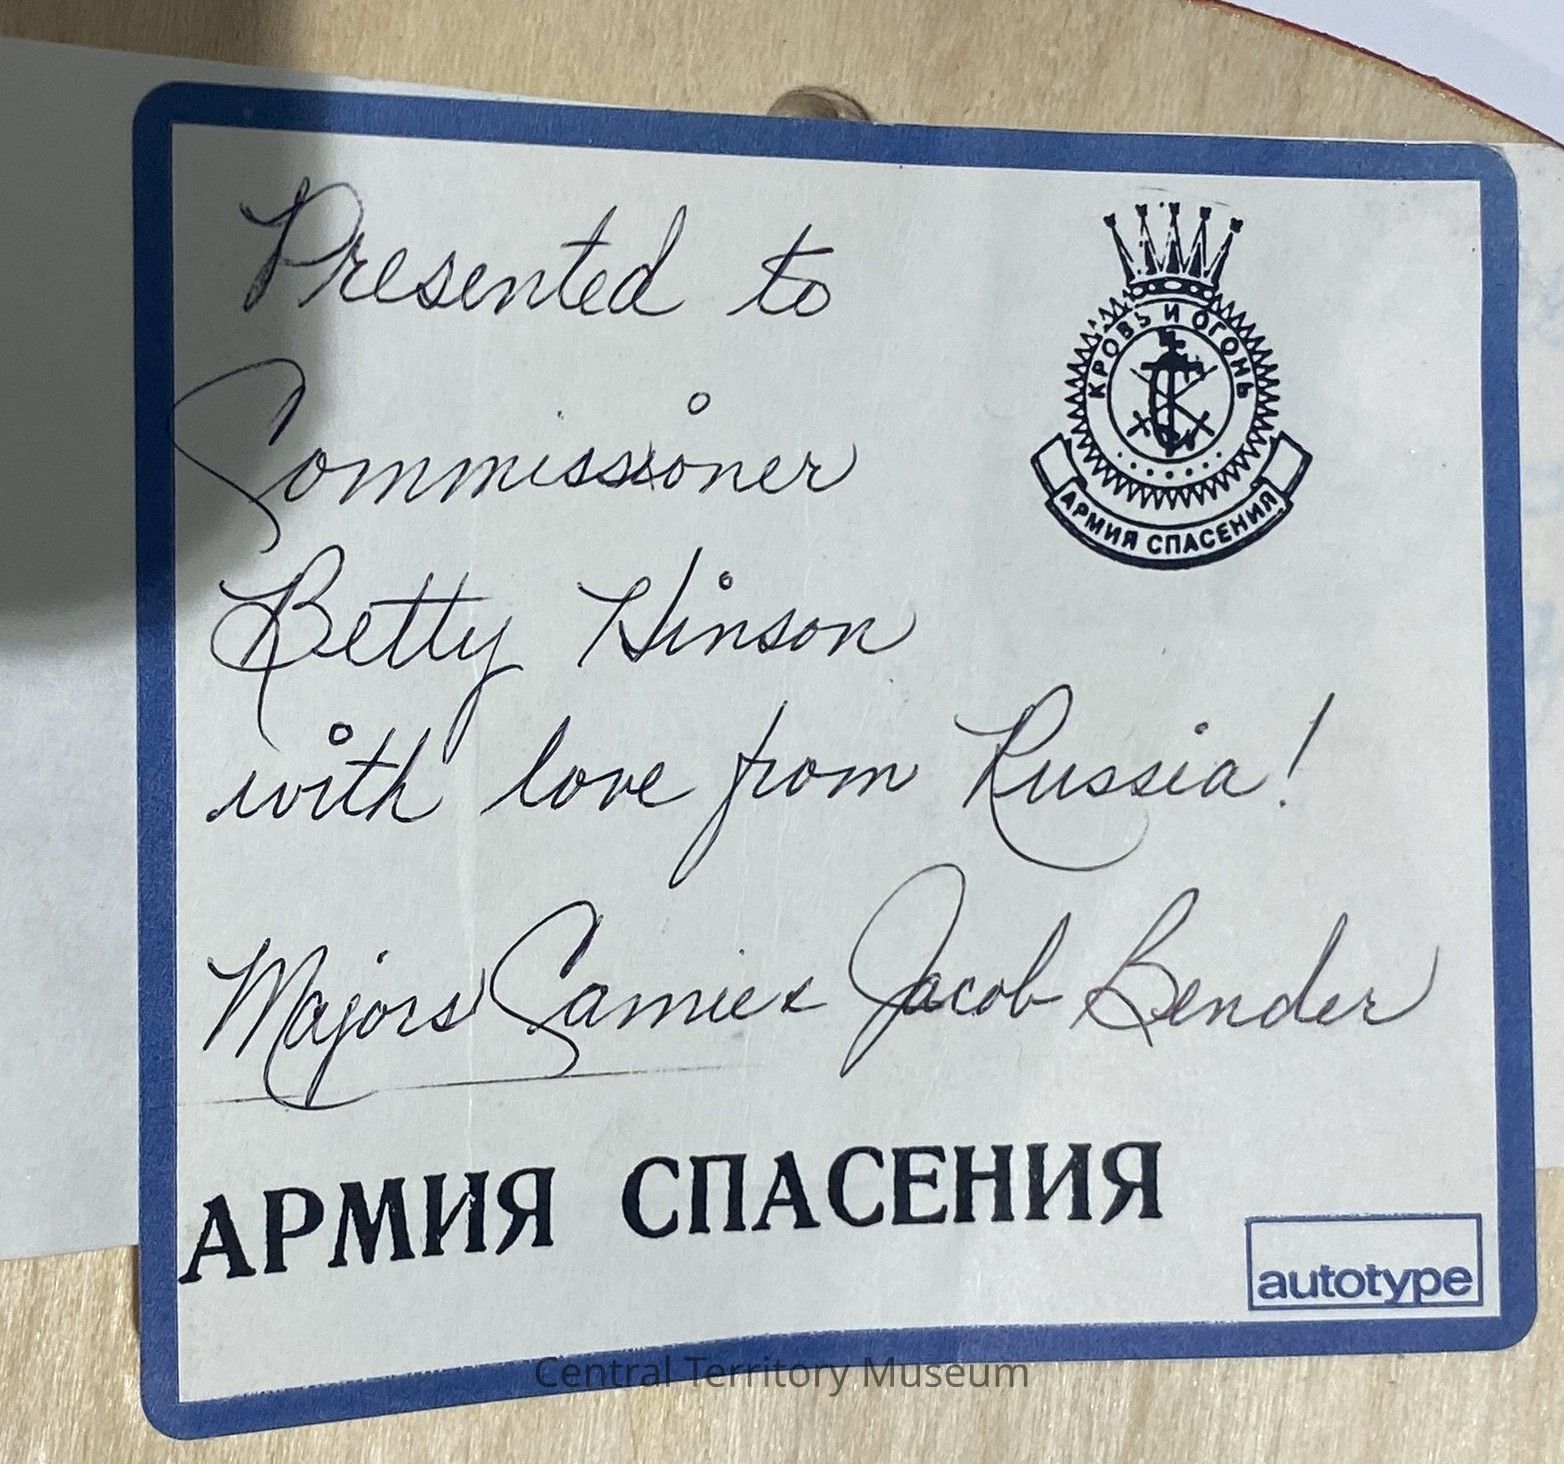 Presented to
Commissioner
Betty Hinson
with love from Russia!
Majors Samie & Jacob Bender
КРОВЬ И ОГОНЬ
АРМИЯ СПАСЕНИЯ
АРМИЯ СПАСЕНИЯ
autotype
Central Territory Museum